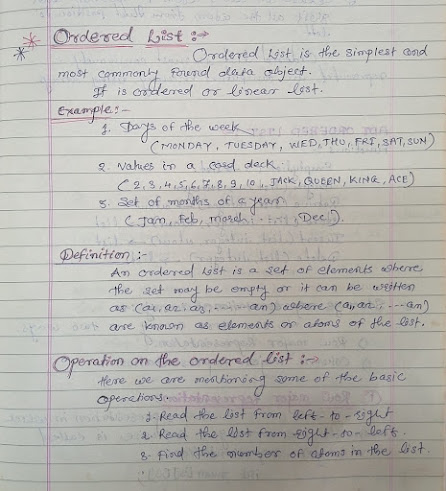 Ordered List :→
Ordered List is the simplest and
most commonly found data object.
It is ordered or linear list.
Example:-
1. Days of the week
(MONDAY, TUESDAY, WED, THU, FRI, SAT, SUN)
2. Values in a card deck
(2, 3, 4, 5, 6, 7, 8, 9, 10, JACK, QUEEN, KING, ACE)
3. Set of months of a year
(Jan, Feb, march . . . . Dec).
Definition :-
An ordered list is a set of elements where
the set may be empty or it can be written
as (a1, a2, a3, ---- an) where (a1, a2, --- an)
are known as elements or atoms of the list.
Operation on the ordered list :→
Here we are mentioning some of the basic
operations.
1. Read the list from left-to-right
2. Read the list from right-to-left.
3. Find the number of atoms in the list.